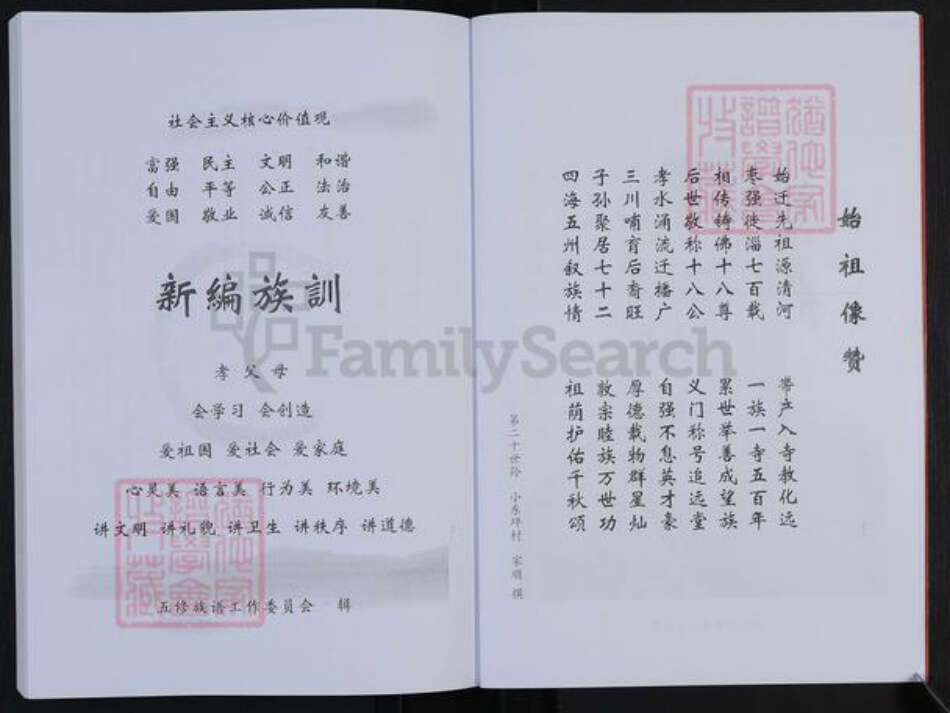 社会主义核心价值观
富强 民主 文明 和谐
自由 平等 公正 法治
爱国 敬业 诚信 友善
新编族訓
孝父母
会学习 会创造
爱祖国 爱社会 爱家庭
心灵美 语言美 行为美 环境美
讲文明 讲礼貌 讲卫生 讲秩序 讲道德
五修族谱工作委员会 辑
始祖像赞
始迁先祖源清河
枣强徙淄七百载
相传铸佛十八尊
后世敬称十八公
孝水涌流迁播广
三川哺育后裔旺
子孙聚居七十二
四海五州叙族情
带产入寺教化远
一族一寺五百年
累世举善成望族
义门称号追远堂
自强不息英才豪
厚德载物群星灿
敦宗睦族万世功
祖荫护佑千秋颂
第二十世孙 小东坪村 家顺 撰
FamilySearch